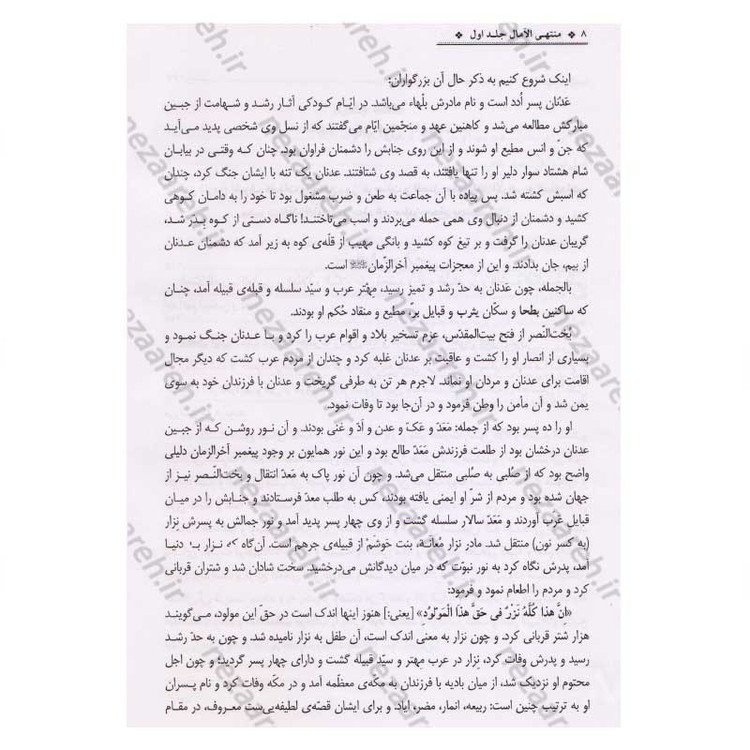 ۸ ❖ منتهی الآمال جلد اول ❖
اینک شروع کنیم به ذکر حال آن بزرگواران:
عَدنان پسر اُدد است و نام مادرش بلْهاء می‌باشد. در ایّام کودکی آثار رشد و شهامت از جبین
مبارکش مطالعه می‌شد و کاهنین عهد و منجّمین ایّام می‌گفتند که از نسل وی شخصی پدید می‌آید
که جنّ و انس مطیع او شوند و از این روی جنابش را دشمنان فراوان بود. چنان که وقتی در بیابان
شام هشتاد سوار دلیر او را تنها یافتند، به قصد وی شتافتند. عدنان یک تنه با ایشان جنگ کرد، چندان
که اسبش کشته شد. پس پیاده با آن جماعت به طعن و ضرب مشغول بود تا خود را به دامان کوهی
کشید و دشمنان از دنبال وی همی حمله می‌بردند و اسب می‌تاختند! ناگاه دستی از کوه بِدَر شد،
گریبان عدنان را گرفت و بر تیغ کوه کشید و بانگی مهیب از قلّه‌ی کوه به زیر آمد که دشمنان عدنان
از بیم، جان بدادند. و این از معجزات پیغمبر آخرالزّمان ﷺ است.
بالجمله، چون عَدنان به حدّ رشد و تمیز رسید، مِهْتر عرب و سیّد سلسله و قبله‌ی قبیله آمد، چنان
که ساکنین بطحا و سکّان یثرب و قبایل برّ، مطیع و منقاد حُکم او بودند.
بُخت‌النّصر از فتح بیت‌المقدّس، عزم تسخیر بلاد و اقوام عرب را کرد و با عدنان جنگ نمود و
بسیاری از انصار او را کشت و عاقبت بر عدنان غلبه کرد و چندان از مردم عرب کشت که دیگر مجال
اقامت برای عدنان و مردان او نماند. لاجرم هر تن به طرفی گریخت و عدنان با فرزندان خود به سوی
یمن شد و آن مأمن را وطن فرمود و در آن‌جا بود تا وفات نمود.
او را ده پسر بود که از جمله: مَعَدّ و عَکّ و عدن و اَدّ و غَنی بودند. و آن نور روشن که از جبین
عدنان درخشان بود از طلعت فرزندش مَعَدّ طالع بود و این نور همایون بر وجود پیغمبر آخرالزمان دلیلی
واضح بود که از صُلبی به صلبی منتقل می‌شد. و چون آن نور پاک به مَعدّ انتقال و بخت‌النّصر نیز از
جهان شده بود و مردم از شرّ او ایمنی یافته بودند، کس به طلب معدّ فرستادند و جنابش را در میان
قبایل عرب آوردند و مَعَدّ سالار سلسله گشت و از وی چهار پسر پدید آمد و نور جمالش به پسرش نِزار
(به کسر نون) منتقل شد. مادر نزار مُعانَة، بنت حَوشَم از قبیله‌ی جرهم است. آن‌گاه که نزار به دنیا
آمد، پدرش نگاه کرد به نور نبوّت که در میان دیدگانش می‌درخشید. سخت شادان شد و شتران قربانی
کرد و مردم را اطعام نمود و فرمود:
«اِنَّ هذا کُلَّهُ نَزْرٌ فی حَقِّ هذَا الْمَوْلُودِ» [یعنی:] هنوز اینها اندک است در حقّ این مولود، می‌گویند
هزار شتر قربانی کرد، و چون نزار به معنی اندک است، آن طفل به نزار نامیده شد. و چون به حدّ رشد
رسید و پدرش وفات کرد، نِزار در عرب مِهتر و سیّد قبیله گشت و دارای چهار پسر گردید؛ و چون اجل
محتوم او نزدیک شد، از میان بادیه با فرزندان به مکّه‌ی معظّمه آمد و در مکّه وفات کرد و نام پسران
او به ترتیب چنین است: ربیعه، انمار، مضر، ایاد. و برای ایشان قصّه‌ی لطیفه‌یی‌ست معروف، در مقام
nezaareh.ir